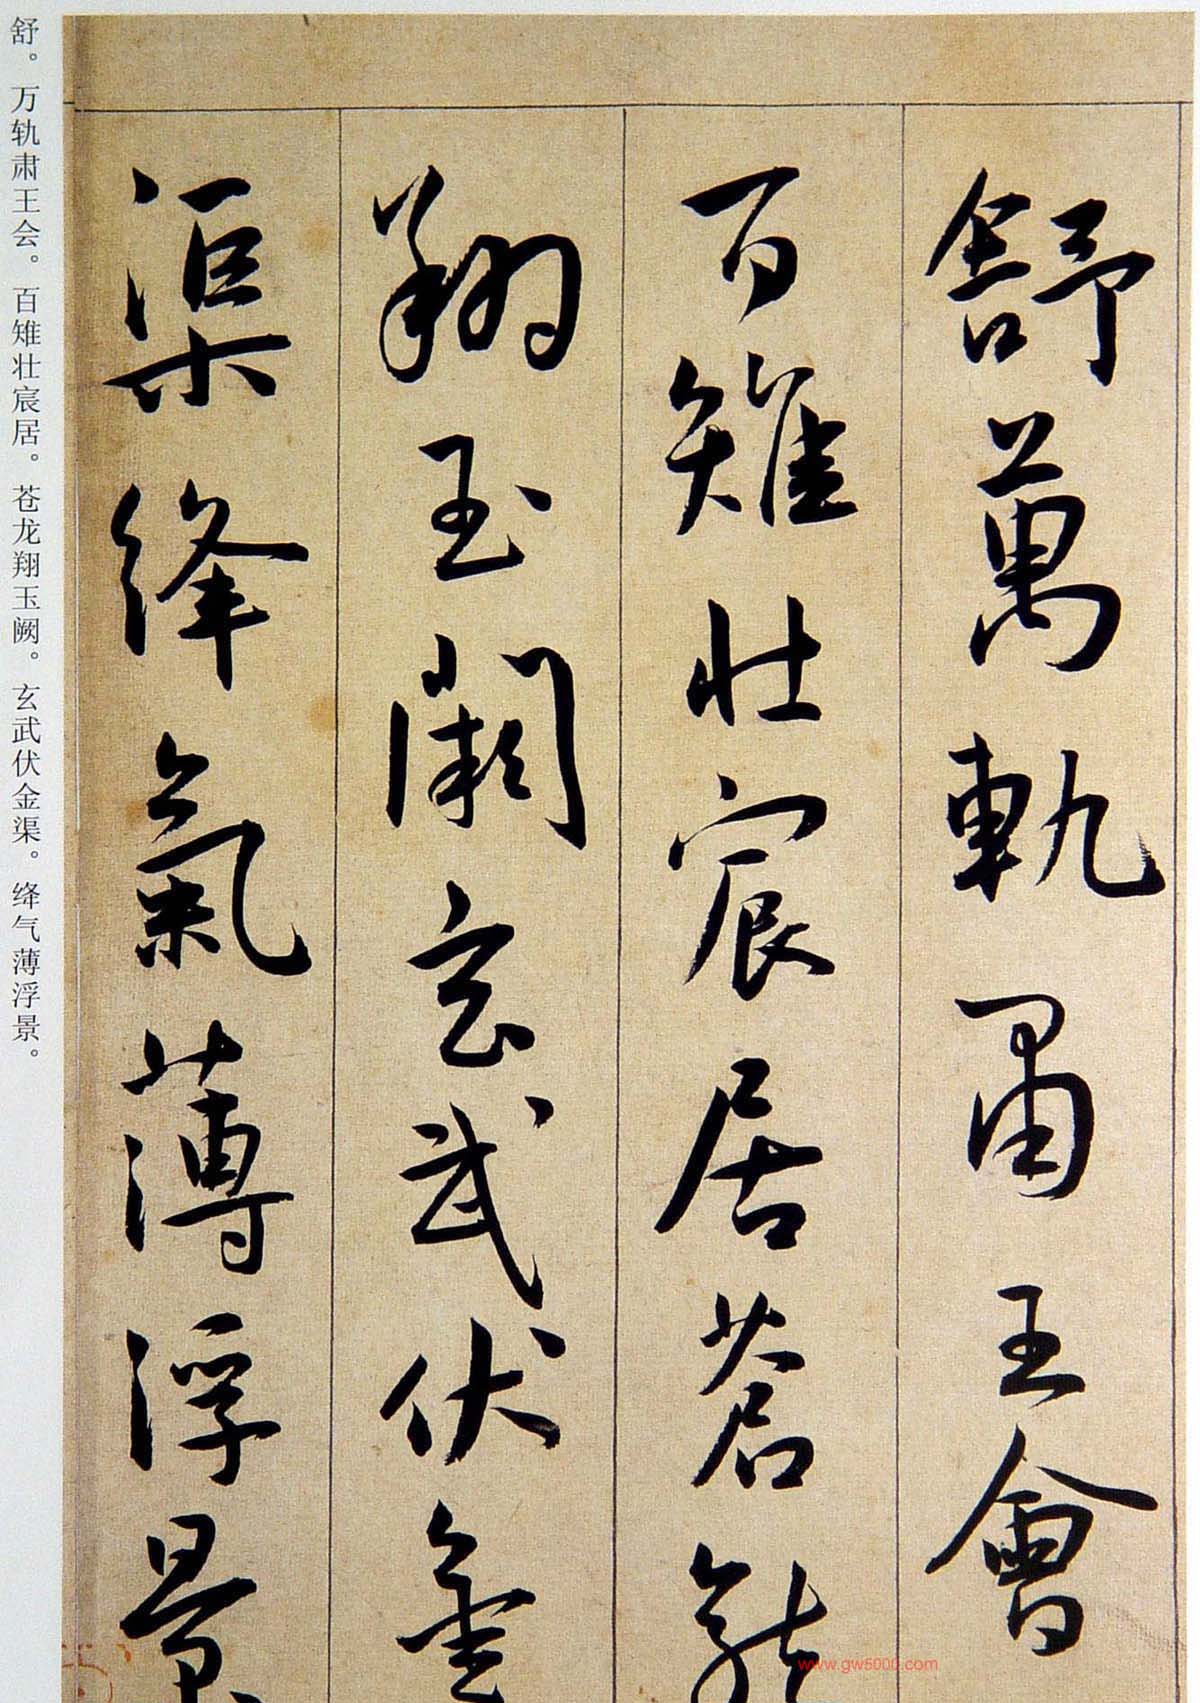 舒萬軌肅王會
百雉壯宸居蒼龍
翔玉闕玄武伏金
渠絳氣薄浮景
舒。万轨肃王会。百雉壮宸居。苍龙翔玉阙。玄武伏金渠。绛气薄浮景。
www.gw5000.com